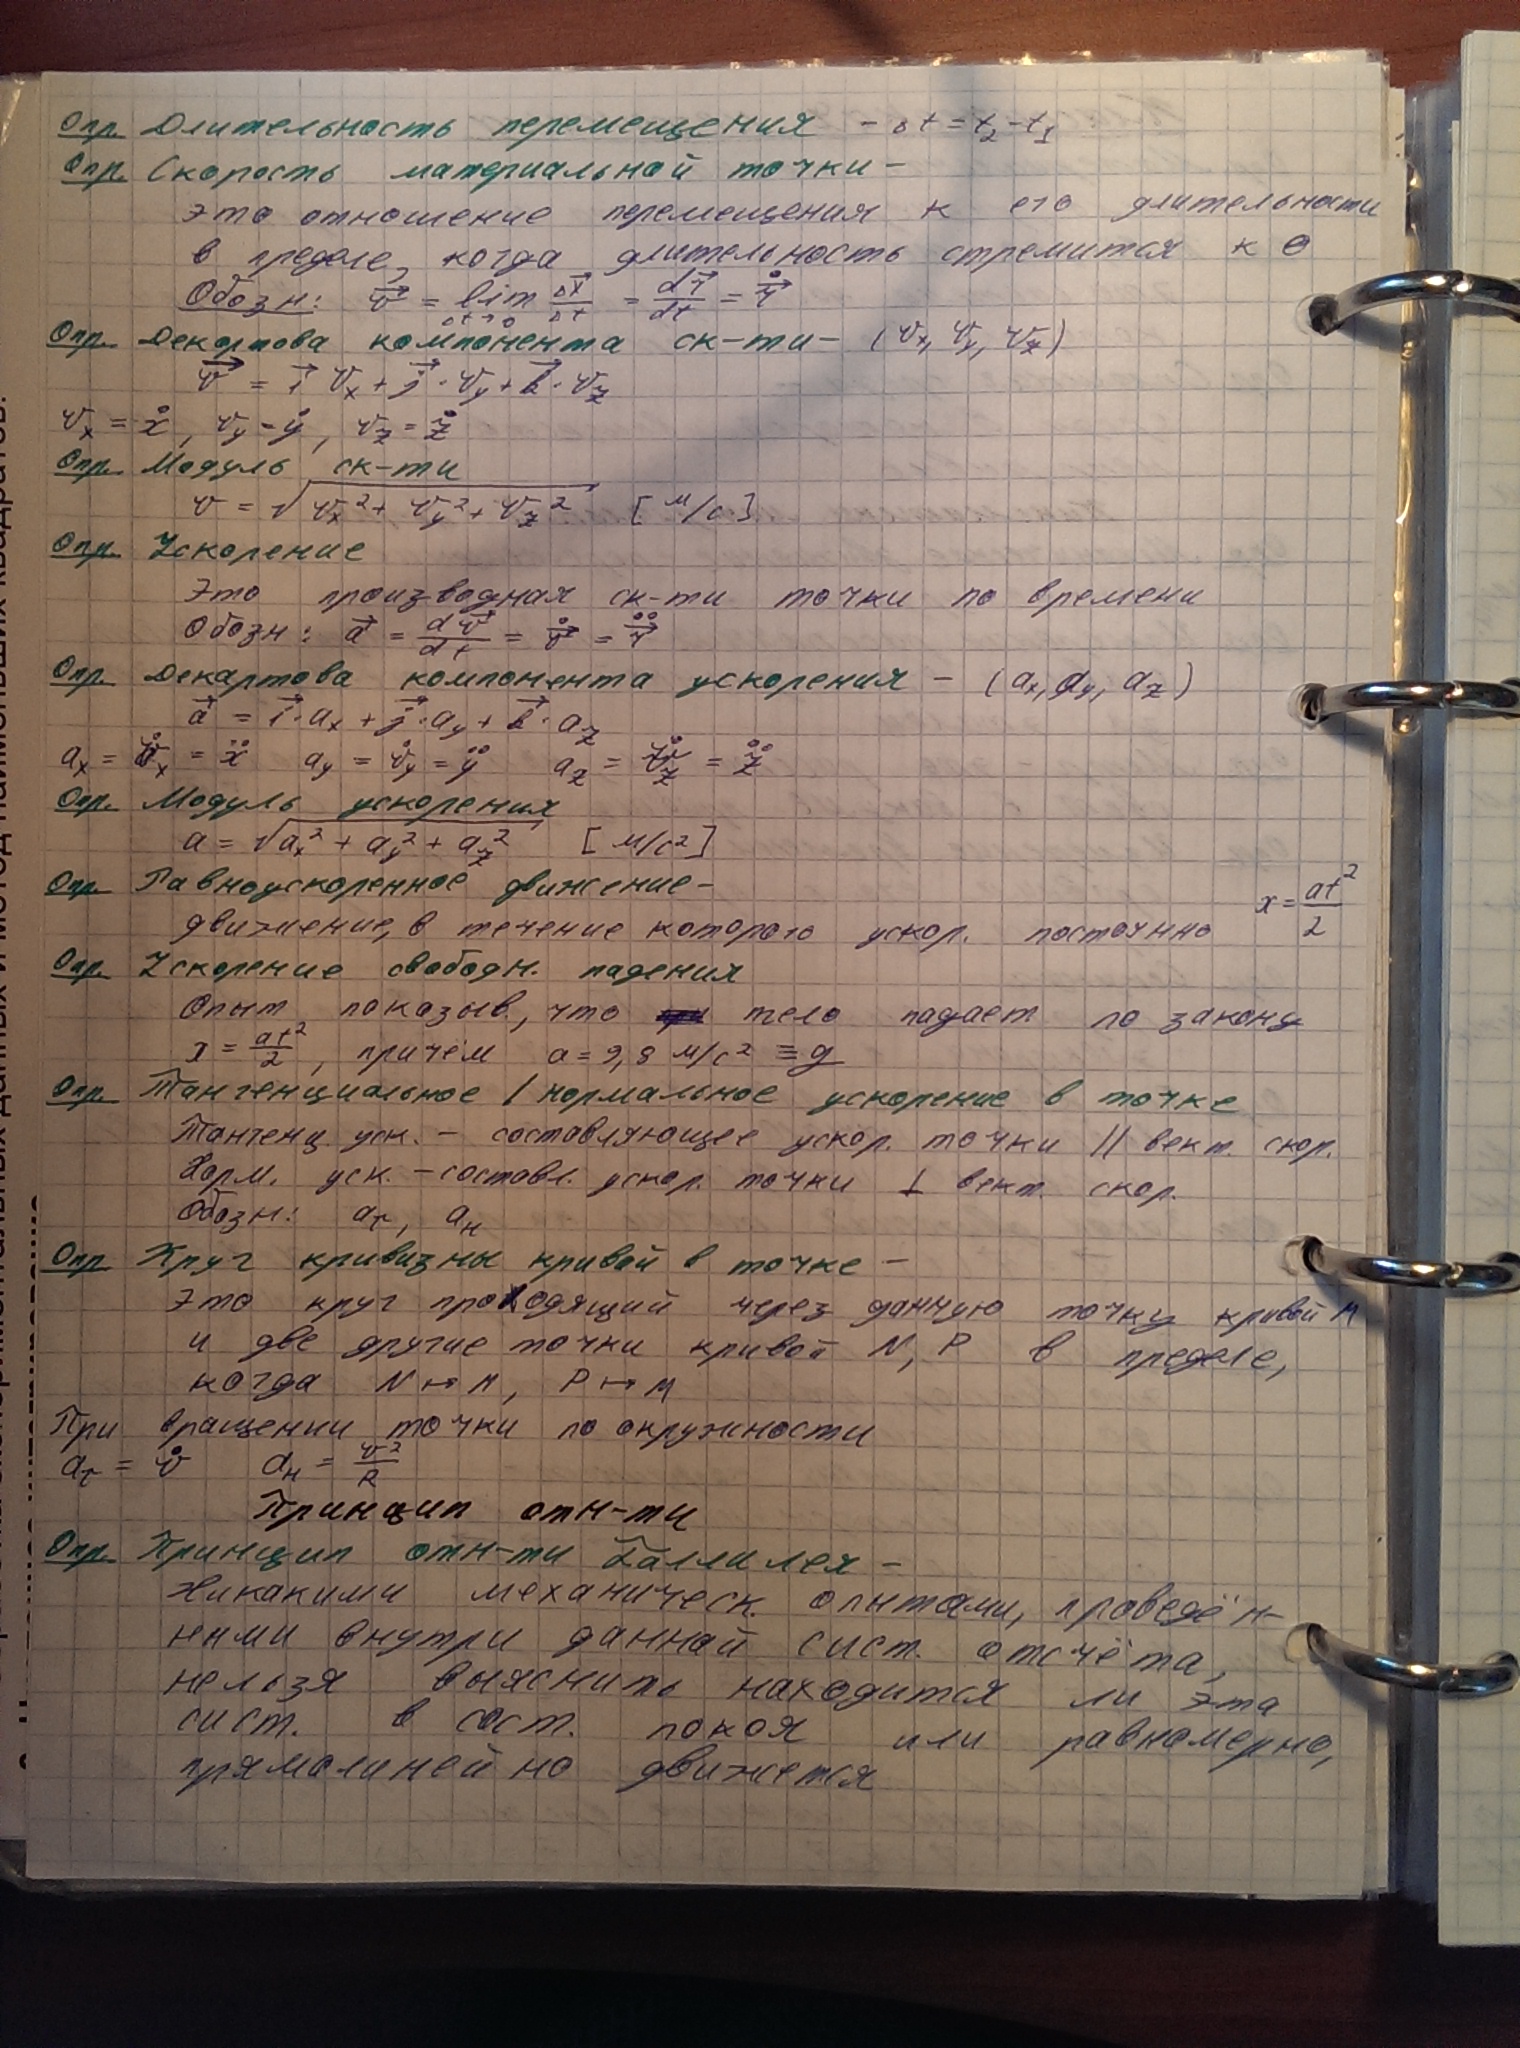 Опр. Длительность перемещения - Δt = t₂ - t₁
Опр. Скорость материальной точки -
это отношение перемещения к его длительности
в пределе, когда длительность стремится к 0
Обозн: v⃗ = lim Δt→0 Δr⃗/Δt = dr⃗/dt = ṙ⃗
Опр. Декартова компонента ск-ти - (vx, vy, vz)
v⃗ = i⃗ vx + j⃗ · vy + k⃗ · vz
vx = ẋ, vy = ẏ, vz = ż
Опр. Модуль ск-ти
v = √(vx² + vy² + vz²) [м/с]
Опр. Ускорение
Это производная ск-ти точки по времени
Обозн: a⃗ = dv⃗/dt = v̇⃗ = r̈⃗
Опр. Декартова компонента ускорения - (ax, ay, az)
a⃗ = i⃗ · ax + j⃗ · ay + k⃗ · az
ax = v̇x = ẍ ay = v̇y = ÿ az = v̇z = z̈
Опр. Модуль ускорения
a = √(ax² + ay² + az²) [м/с²]
Опр. Равноускоренное движение -
движение, в течение которого ускор. постоянно x = at²/2
Опр. Ускорение свободн. падения
Опыт показыв., что тело падает по закону
x = at²/2, причём a = 9,8 м/с² ≡ g
Опр. Тангенциальное / нормальное ускорение в точке
Тангенц. уск. - составляющее ускор. точки || вект. скор.
Норм. уск. - составл. ускор. точки ⊥ вект. скор.
Обозн: aτ, aн
Опр Круг кривизны кривой в точке -
Это круг проходящий через данную точку кривой M
и две другие точки кривой N, P в пределе,
когда N ↦ M, P ↦ M
При вращении точки по окружности
aτ = v̇ aн = v²/R
Принцип отн-ти
Опр. Принцип отн-ти Галлилея -
Никакими механическ. опытами, проведён-
ными внутри данной сист. отсчёта,
нельзя выяснить находится ли эта
сист. в сост. покоя или равномерно,
прямолинейно движется